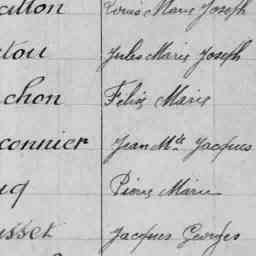 allon Louis Marie Joseph
tou Jules Marie Joseph
chon Félix Marie
connier Jean Mie Jacques
uq Pierre Marie
usset Jacques Georges